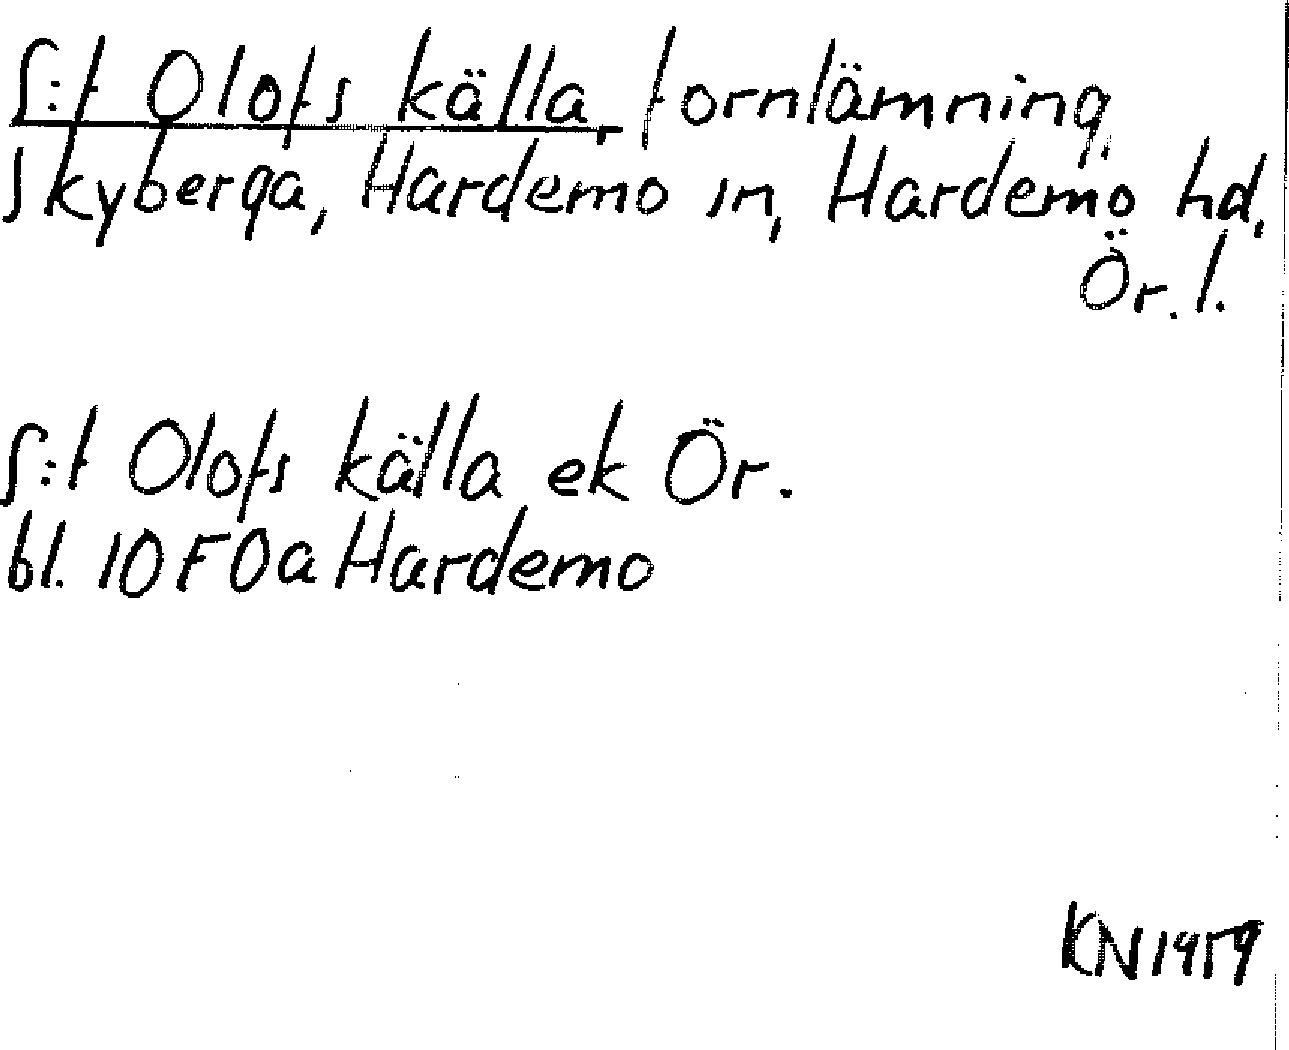 S:t Olofs källa, fornlämning,
Skyberga, Hardemo sn, Hardemo hd,
Ör. l.
S:t Olofs källa ek Ör.
bl. 10F0a Hardemo
KN 1959